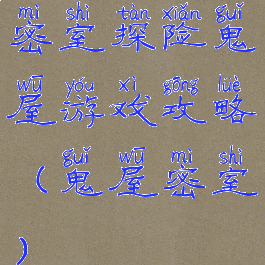 mì shì tàn xiǎn guǐ
密室探险鬼
wū yóu xì gōng lüè
屋游戏攻略
guǐ wū mì shì
（鬼屋密室
）